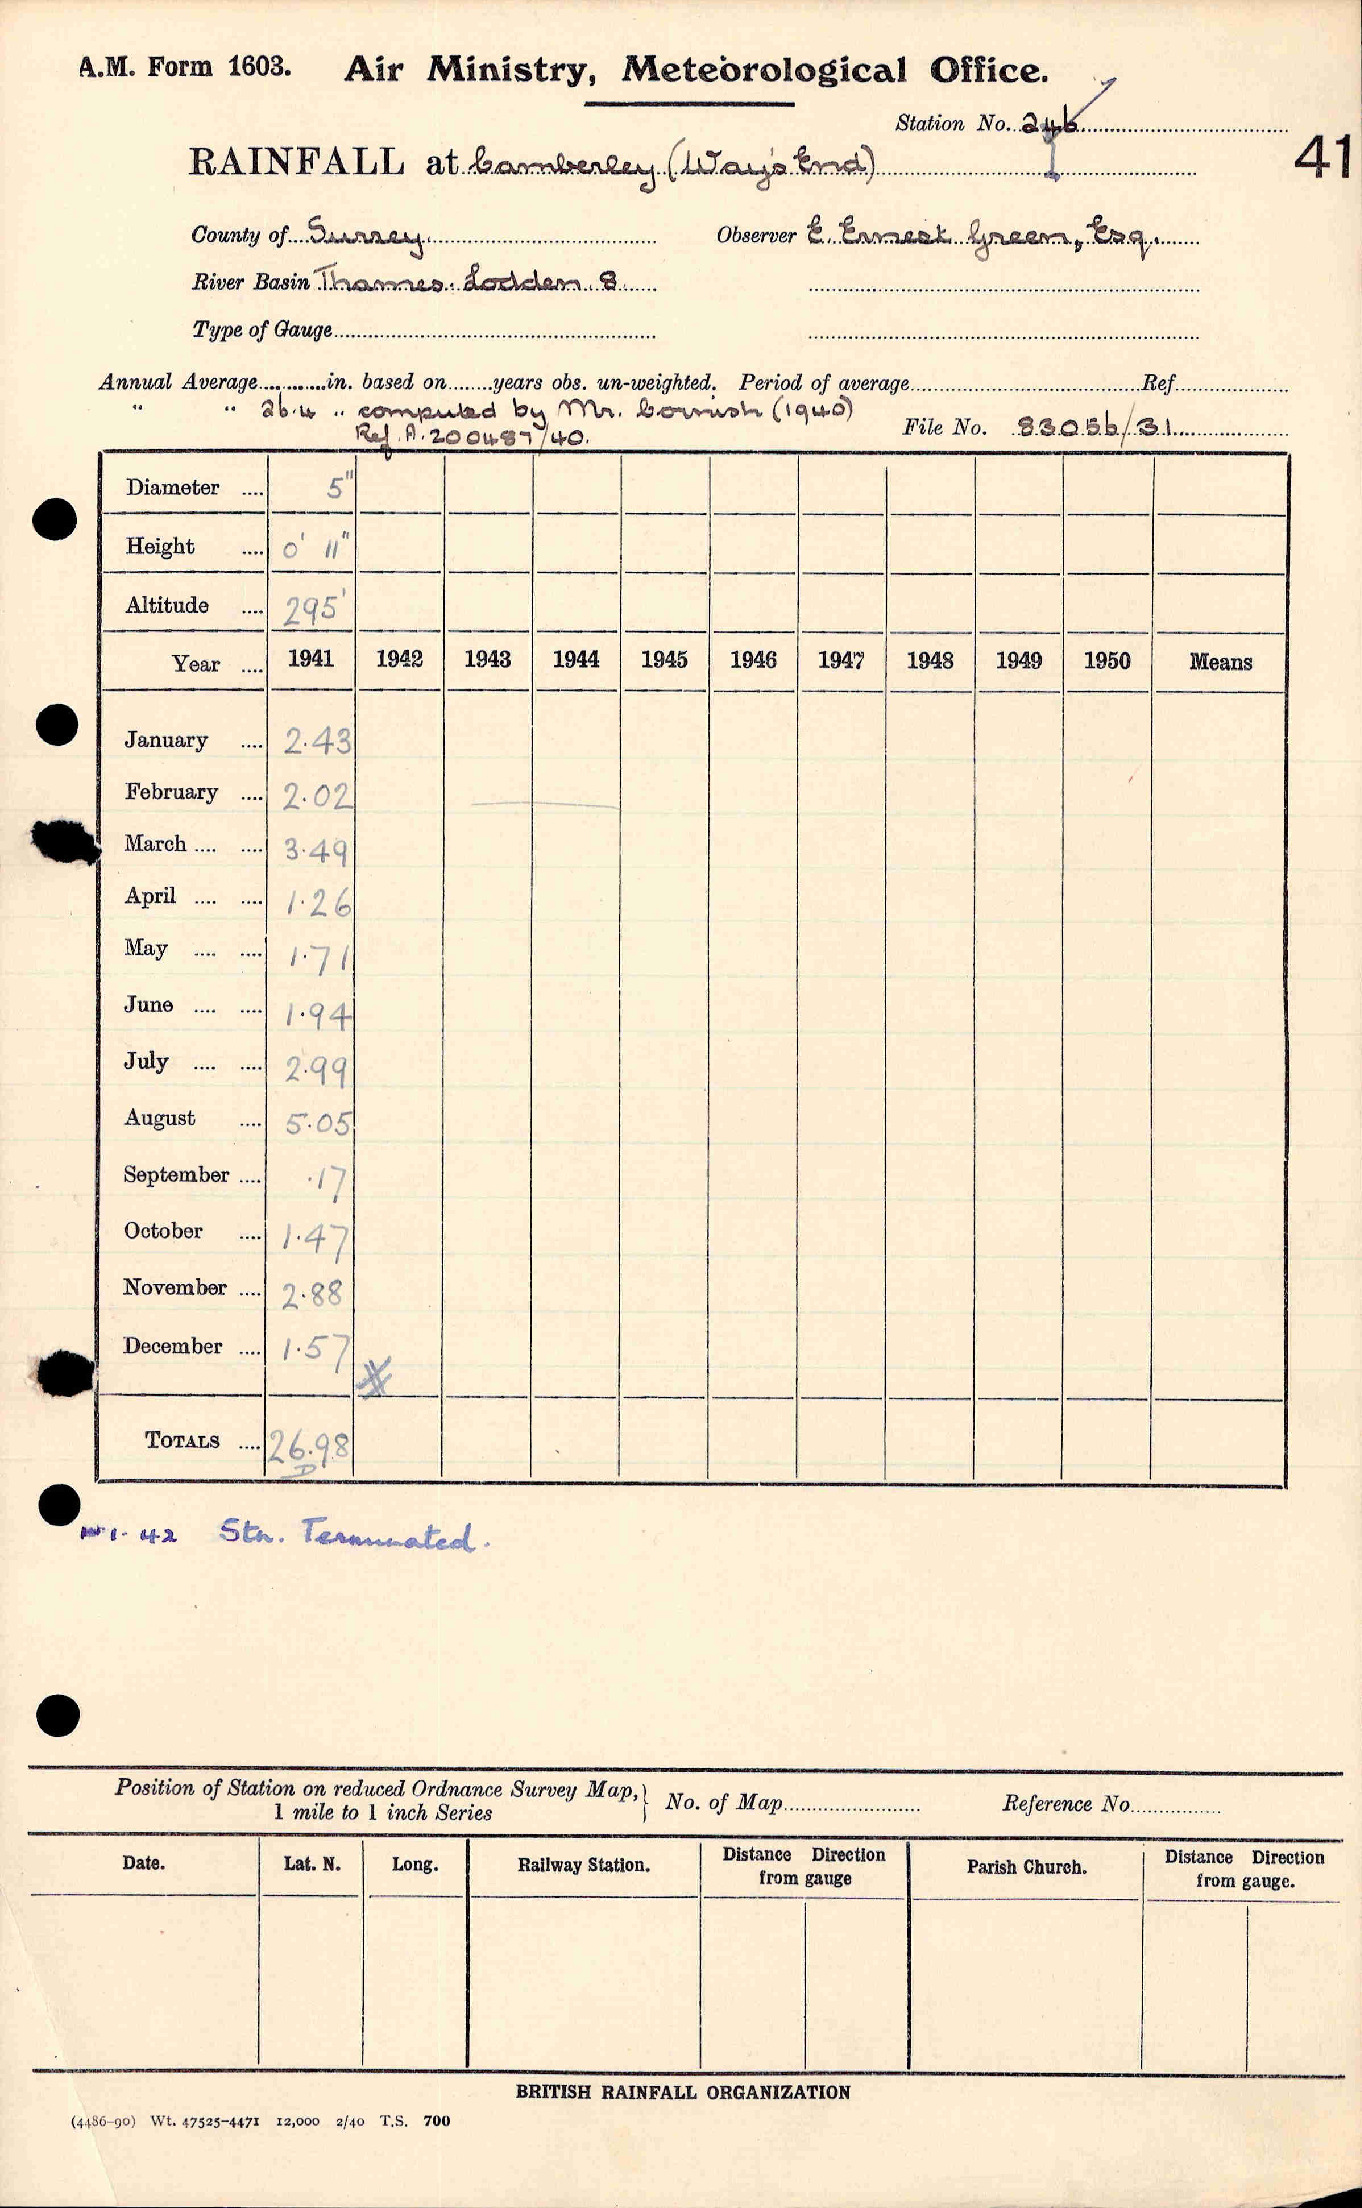 A.M. Form 1603. Air Ministry, Meteorological Office.
Station No. 246
41
RAINFALL at Camberley (Way's End)
County of Surrey. Observer E. Ernest Green, Esq.
River Basin Thames. Lodden 8
Type of Gauge
Annual Average in. based on years obs. un-weighted. Period of average Ref.
" " 26.4 " computed by Mr. Cornish (1940)
Ref. A.200487/40. File No. 83056/31
Diameter .... 5"
Height .... 0' 11"
Altitude .... 295'
Year .... 1941 1942 1943 1944 1945 1946 1947 1948 1949 1950 Means
January .... 2.43
February .... 2.02
March .... .... 3.49
April .... .... 1.26
May .... .... 1.71
June .... .... 1.94
July .... .... 2.99
August .... 5.05
September .... .17
October .... 1.47
November .... 2.88
December .... 1.57
TOTALS .... 26.98
1. 42 Stn. Terminated.
Position of Station on reduced Ordnance Survey Map, } No. of Map Reference No.
1 mile to 1 inch Series
Date. Lat. N. Long. Railway Station. Distance Direction from gauge Parish Church. Distance Direction from gauge.
BRITISH RAINFALL ORGANIZATION
(4486-90) Wt. 47525-4471 12,000 2/40 T.S. 700